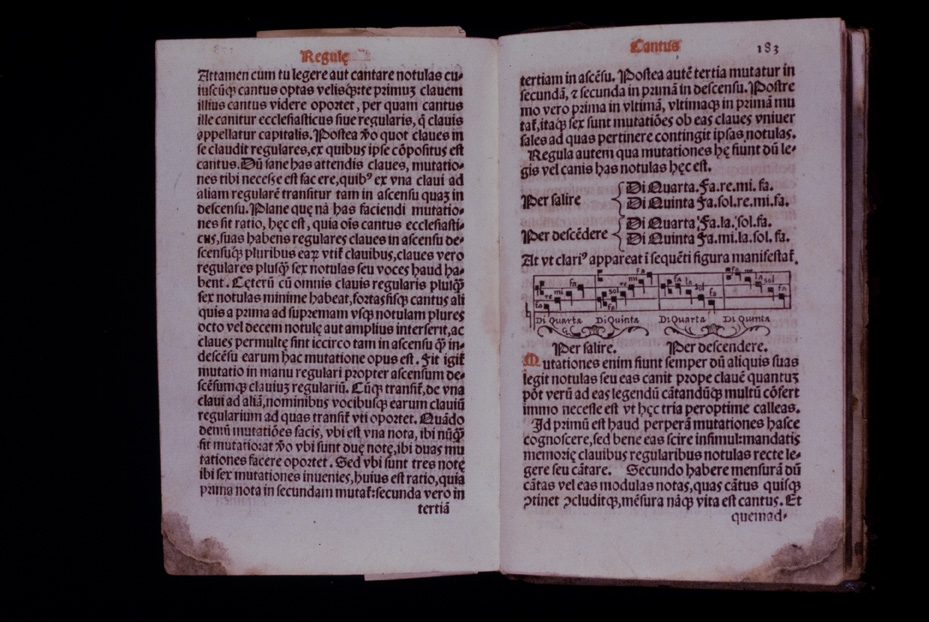 Regulę
Attamen cùm tu legere aut cantare notulas cu-
iuscūq; cantus optas velisq;:te primuȝ clauem
illius cantus videre oportet, per quam cantus
ille canitur ecclesiasticus siue regularis, q̄ clauis
appellatur capitalis. Postea ꝟo quot claues in
se claudit regulares, ex quibus ipse cōpositus est
cantus. Dū sane has attendis claues, mutatio-
nes tibi necesse est facere, quibꝰ ex vna claui ad
aliam regularē transitur tam in ascensu quaȝ in
descensu. Plane quę nā has faciendi mutatio-
nes sit ratio, hęc est, quia oīs cantus ecclesiasti-
cus, suas habens regulares claues in ascensu de-
scensuq; pluribus eaꝝ vtit̄ clauibus, claues vero
regulares plusq̄; sex notulas seu voces haud ha-
bent. Cęterū cū omnis clauis regularis plusq̄;
sex notulas minime habeat, fortassisq; cantus ali
quis a prima ad supremam vsq; notulam plures
octo vel decem notulę aut amplius interserit, ac
claues permultę sint iccirco tam in ascensu q̄ in-
descēsu earum hac mutatione opus est. Fit igit̄
mutatio in manu regulari propter ascensum de-
scēsumq; clauiuȝ regulariū. Cūq; transit̄, de vna
claui ad aliā, nominibus vocibusq; earum clauiū
regularium ad quas transit̄ vti oportet. Quādo
demū mutatiōes facis, vbi est vna nota, ibi nūq̄
fit mutatio: at ꝟo vbi sunt duę notę, ibi duas mu
tationes facere oportet. Sed vbi sunt tres notę
ibi sex mutationes inuenies, huius est ratio, quia
prima nota in secundam mutat̄: secunda vero in
tertiā
Cantus 183
tertiam in ascēsu. Postea autē tertia mutatur in
secundā, ⁊ secunda in primā in descensu. Postre
mo vero prima in vltimā, vltimaq; in primā mu
tat̄, itaq; sex sunt mutatiōes ob eas claues vniuer
sales ad quas pertinere contingit ipsas notulas.
Regula autem qua mutationes hę fiunt dū le-
gis vel canis has notulas hęc est.
Per salire { Di Quarta. Fa. re. mi. fa.
Di Quinta Fa. sol. re. mi. fa.
Per descēdere { Di Quarta Fa. la. sol. fa.
Di Quinta Fa. mi. la. sol. fa.
At vt clariꝰ appareat ī sequēti figura manifestat̄.
Di Quarta Di Quinta Di Quarta Di Quinta
Per salire. Per descendere.
Mutationes enim fiunt semper dū aliquis suas
legit notulas seu eas canit prope clauē quantuȝ
pōt verū ad eas legendū cātandūq; multū cōfert
immo necesse est vt hęc tria peroptime calleas.
Id primū est haud perperā mutationes hasce
cognoscere, sed bene eas scire insimul: mandatis
memorię clauibus regularibus notulas recte le-
gere seu cātare. Secundo habere mensurā dū
cātas vel eas modulas notas, quas cātus quisq;
ↄtinet ↄcluditq;, mēsura nāq; vita est cantus. Et
quemad-